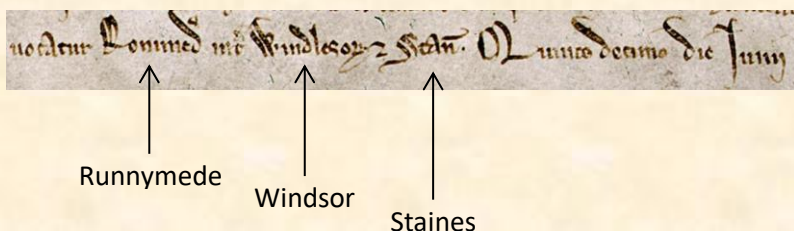 vocatur Ronimed int Windlesor & Stan. Quinto decimo die Junii
Runnymede
Windsor
Staines